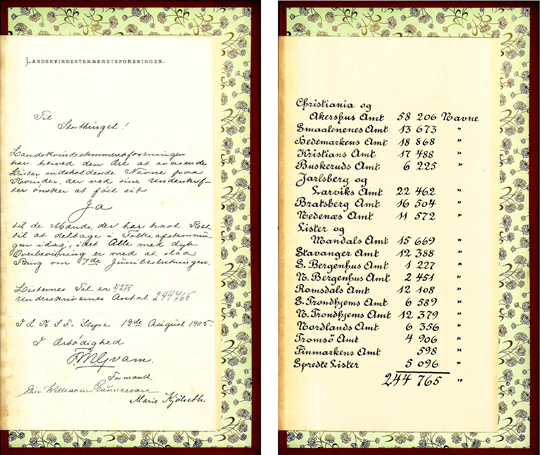 LANDSKVINDESTEMMERETSFORENINGEN.
Til
Storthinget!
Landskvindestemmeretsforeningen
har herved den Ære at oversende
Lister indeholdende Navne paa
Kvinder, der ved sin Underskrift
ønsker at föie sit
Ja
til de Mænds, der har havt Ret
til at deltage i Folkeafstemnin-
gen idag, idet Alle med dyb
Overbevisning er med at slaa
Ring om 7de Junibeslutningen.
Listernes Tal er 4275
Underskrivernes Antal 244765.
I L. K. S. F. Styre 13de August 1905.
I Ærbödighed
FMQvam.
Formand.
Marie Kjölseth.
Christiania og
Akershus Amt 58 206 Navne
Smaalenenes Amt 13 673 "
Hedemarkens Amt 18 868 "
Kristians Amt 17 488 "
Buskeruds Amt 6 225 "
Jarlsberg og
Larviks Amt 22 462 "
Bratsberg Amt 16 504 "
Nedenæs Amt 11 572 "
Lister og
Mandals Amt 15 669 "
Stavanger Amt 12 388 "
S. Bergenhus Amt 1 227 "
N. Bergenhus Amt 2 451 "
Romsdals Amt 12 108 "
S. Trondhjems Amt 6 589 "
N. Trondhjems Amt 12 379 "
Nordlands Amt 6 356 "
Tromsö Amt 4 906 "
Finmarkens Amt 598 "
Spredte Lister 5 096 "
244 765 "